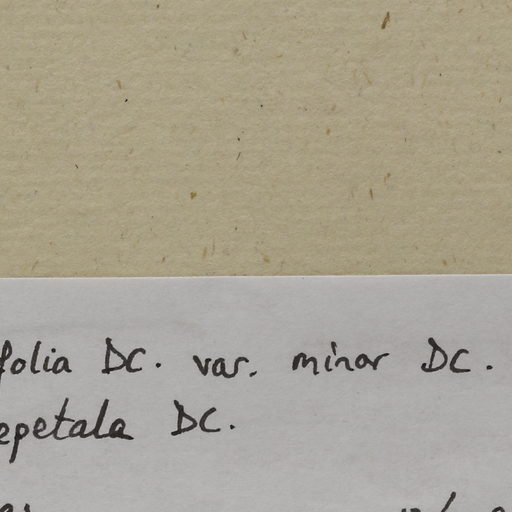 folia DC. var. minor DC.
epetala DC.